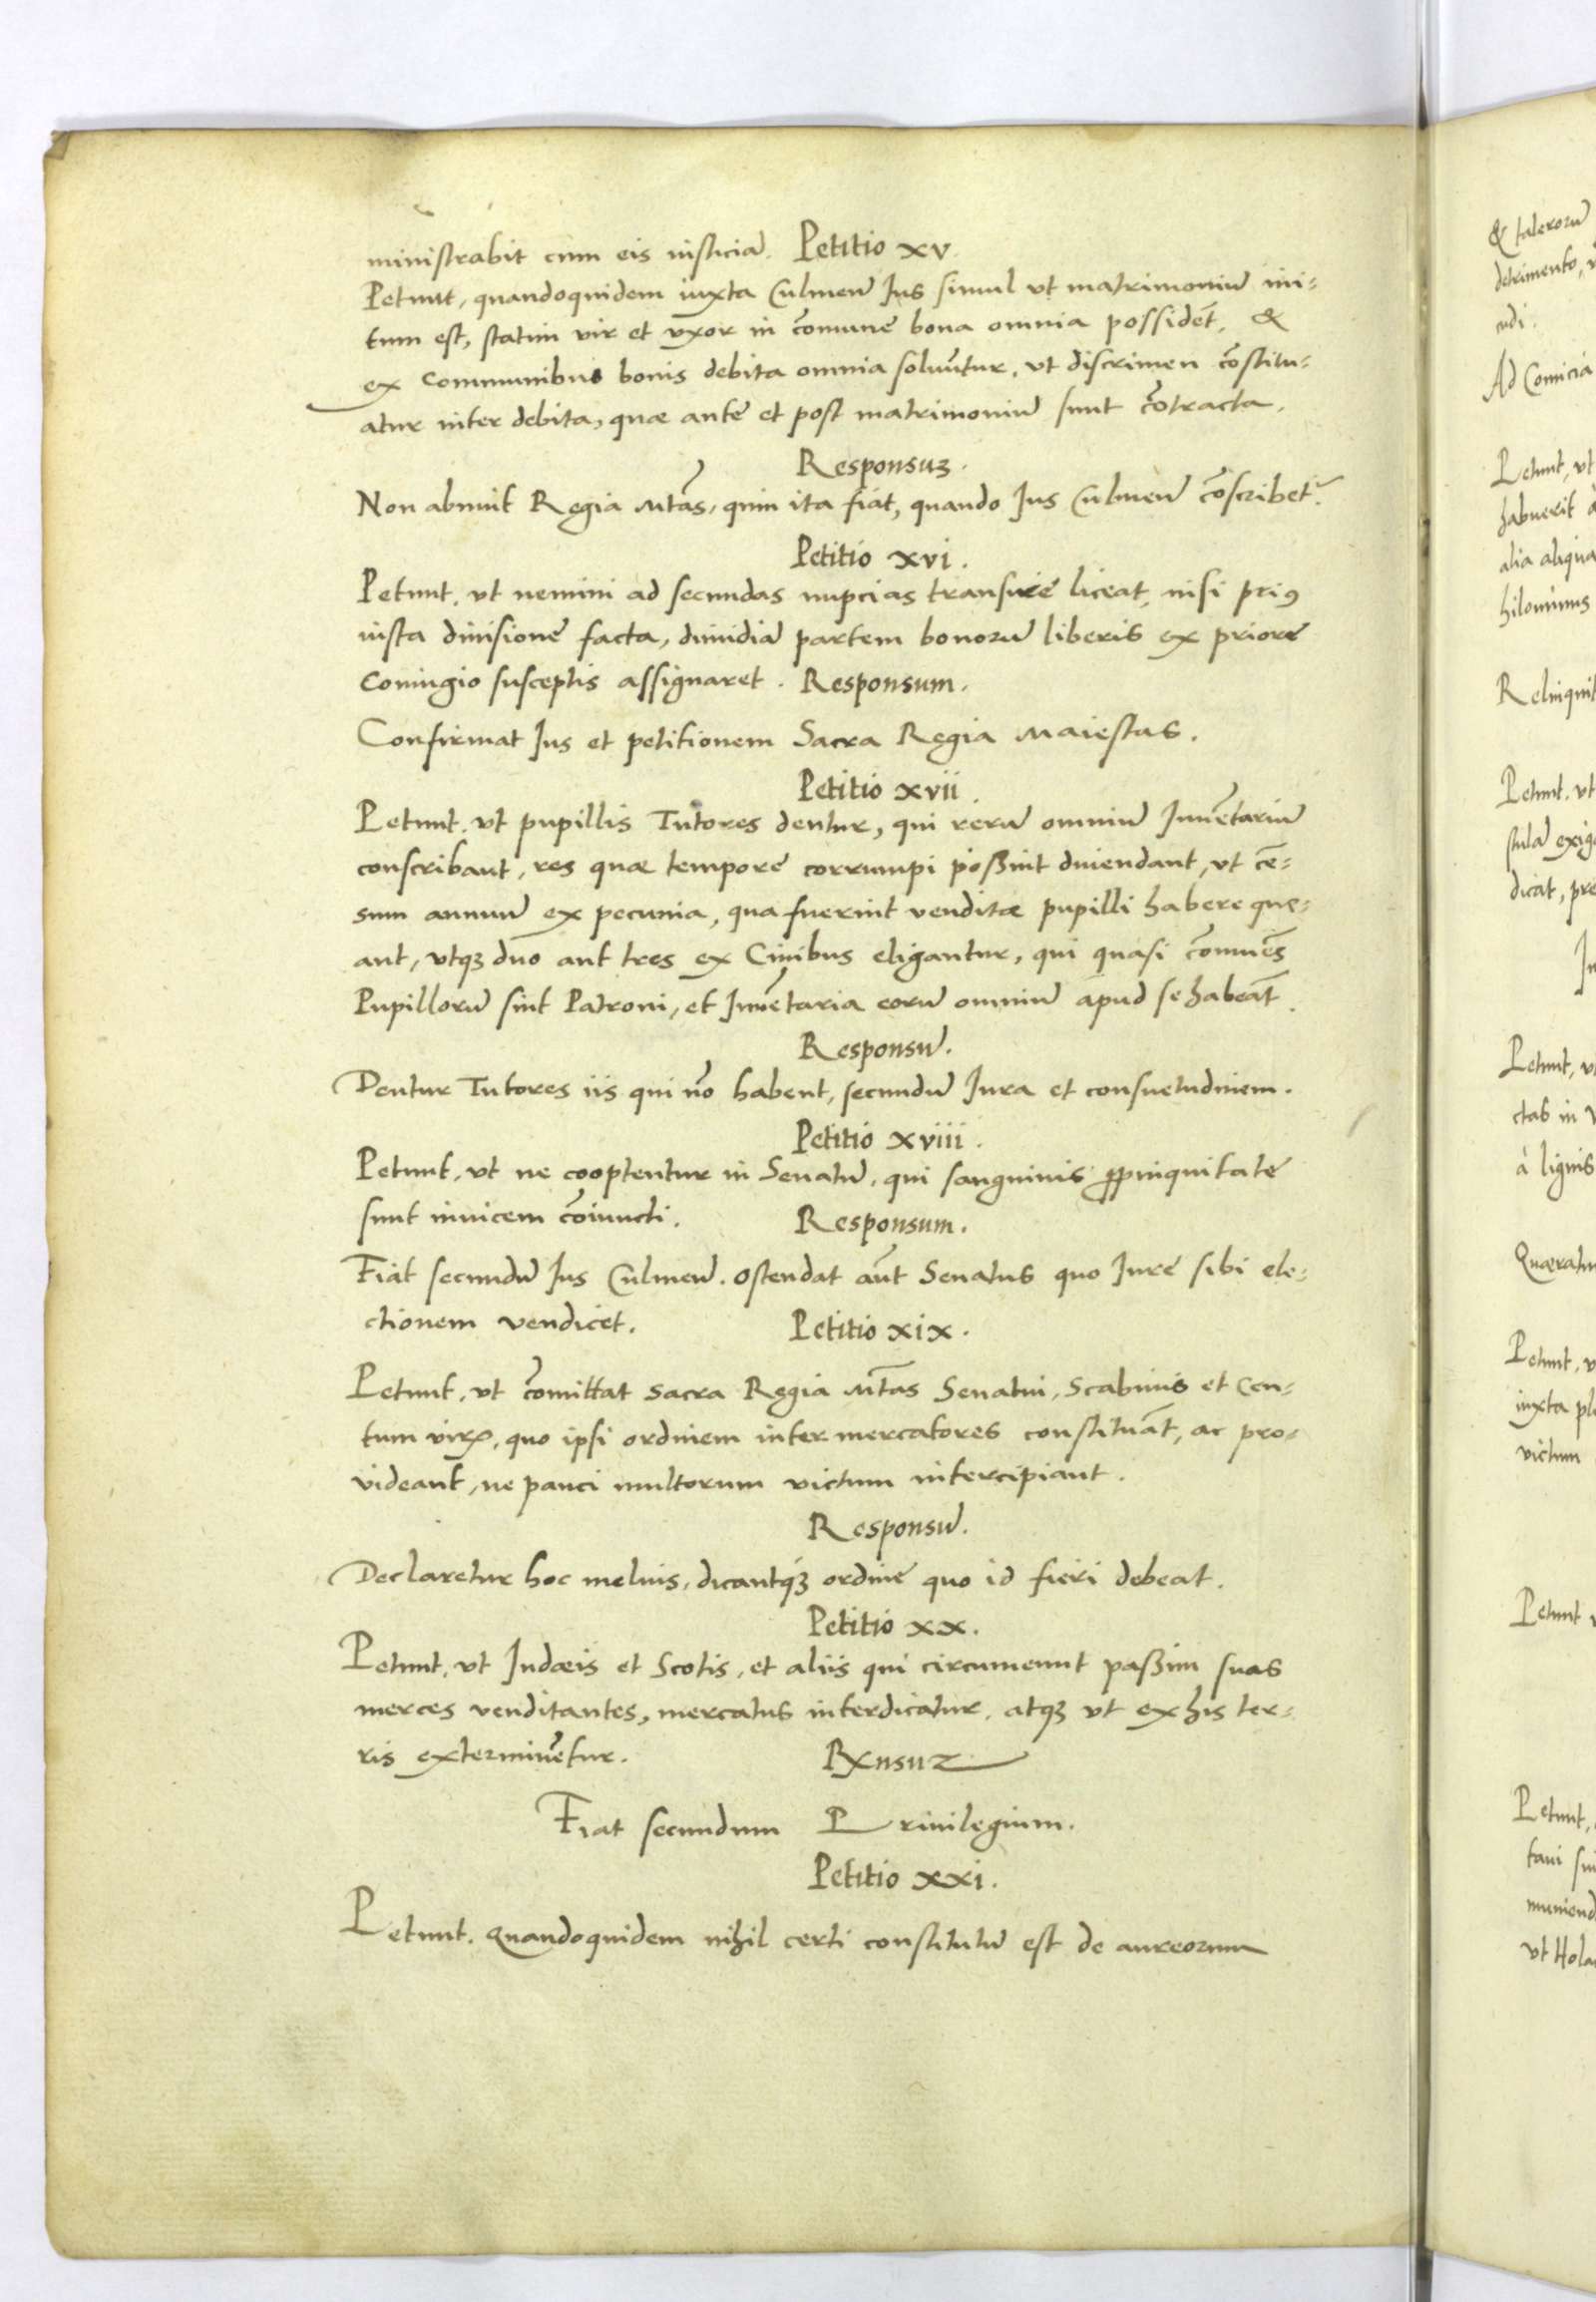 ministrabit cum eis iusticiā. Petitio xv.
Petunt, quandoquidem iuxta Culmeñ Ius simul vt matrimoniū ini-
tum est, statim vir et vxor in cōmune bona omnia possidēt, &
ex communibus bonis debita omnia soluūtur, vt discrimen cōstitu-
atur inter debita, quæ ante et post matrimoniū sunt cōtracta.
Responsuȝ.
Non abnuit Regia Mtās, quin ita fiat, quando Ius Culmeñ cōscribet̃.
Petitio xvi.
Petunt, vt nemini ad secundas nupcias transire liceat, nisi priꝰ
iusta diuisione facta, dimidiā partem bonorū liberis ex priore
coniugio susceptis assignaret. Responsum.
Confirmat Ius et petitionem Sacra Regia Maiestas.
Petitio xvii.
Petunt, vt pupillis Tutores dentur, qui rerū omniū Inuētariū
conscribant, res quæ tempore corrumpi possint diuendant, vt cē-
sum annuū ex pecunia, qua fuerint venditæ pupilli habere que-
ant, vtqȝ duo aut tres ex Ciuibus eligantur, qui quasi cōmuēs
Pupillorū sint Patroni, et Inuētaria eorū omniū apud se habeāt.
Responsū.
Dentur Tutores iis qui nō habent, secundū Iura et consuetudinem.
Petitio xviii.
Petunt, vt ne cooptentur in Senatū, qui sanguinis ꝓpinquitate
sunt inuicem cōiuncti. Responsum.
Fiat secundū Ius Culmeñ. Ostendat aūt Senatus quo Iure sibi ele-
ctionem vendicet. Petitio xix.
Petunt, vt cōmittat Sacra Regia Mtās Senatui, Scabinis et Cen-
tum virꝭ, quo ipsi ordinem inter mercatores constituāt, ac pro-
videant, ne pauci multorum victum intercipiant.
Responsū.
Declaretur hoc melius, dicantqȝ ordinē quo id fieri debeat.
Petitio xx.
Petunt, vt Iudæis et Scotis, et aliis qui circumeunt passim suas
merces venditantes, mercatus interdicatur, atqȝ vt ex his ter-
ris exterminētur. Rxnsuz
Fiat secundum Priuilegium.
Petitio xxi.
Petunt. Quandoquidem nihil certi constitutū est de aureorum
& talerorū
detrimento,
udi.
Ad Comicia
Petunt, vt
habuerit
alia aliqua
hilominus
Relinquit
Petunt, vt
stulā exig
dicat, pre
In
Petunt, v
ctas in
à lignis
Quæratu
Petunt, v
iuxta pl
victum
Petunt
Petunt,
tani sui
muniend
vt Hola